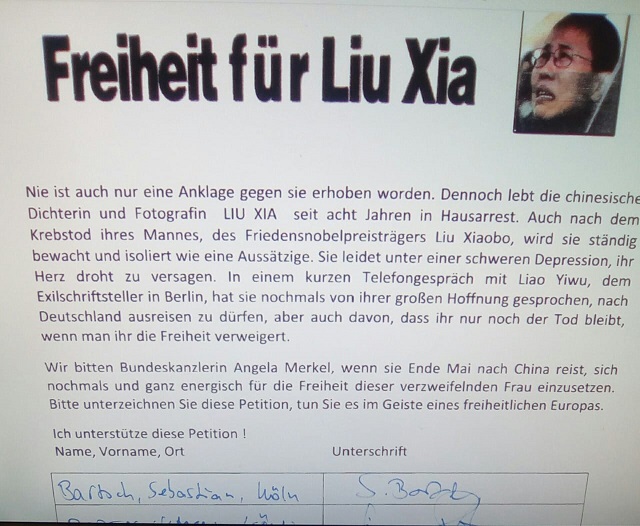 Freiheit für Liu Xia
Nie ist auch nur eine Anklage gegen sie erhoben worden. Dennoch lebt die chinesische
Dichterin und Fotografin LIU XIA seit acht Jahren in Hausarrest. Auch nach dem
Krebstod ihres Mannes, des Friedensnobelpreisträgers Liu Xiaobo, wird sie ständig
bewacht und isoliert wie eine Aussätzige. Sie leidet unter einer schweren Depression, ihr
Herz droht zu versagen. In einem kurzen Telefongespräch mit Liao Yiwu, dem
Exilschriftsteller in Berlin, hat sie nochmals von ihrer großen Hoffnung gesprochen, nach
Deutschland ausreisen zu dürfen, aber auch davon, dass ihr nur noch der Tod bleibt,
wenn man ihr die Freiheit verweigert.
Wir bitten Bundeskanzlerin Angela Merkel, wenn sie Ende Mai nach China reist, sich
nochmals und ganz energisch für die Freiheit dieser verzweifelnden Frau einzusetzen.
Bitte unterzeichnen Sie diese Petition, tun Sie es im Geiste eines freiheitlichen Europas.
Ich unterstütze diese Petition !
Name, Vorname, Ort Unterschrift
Bartsch, Sebastian, Köln S.